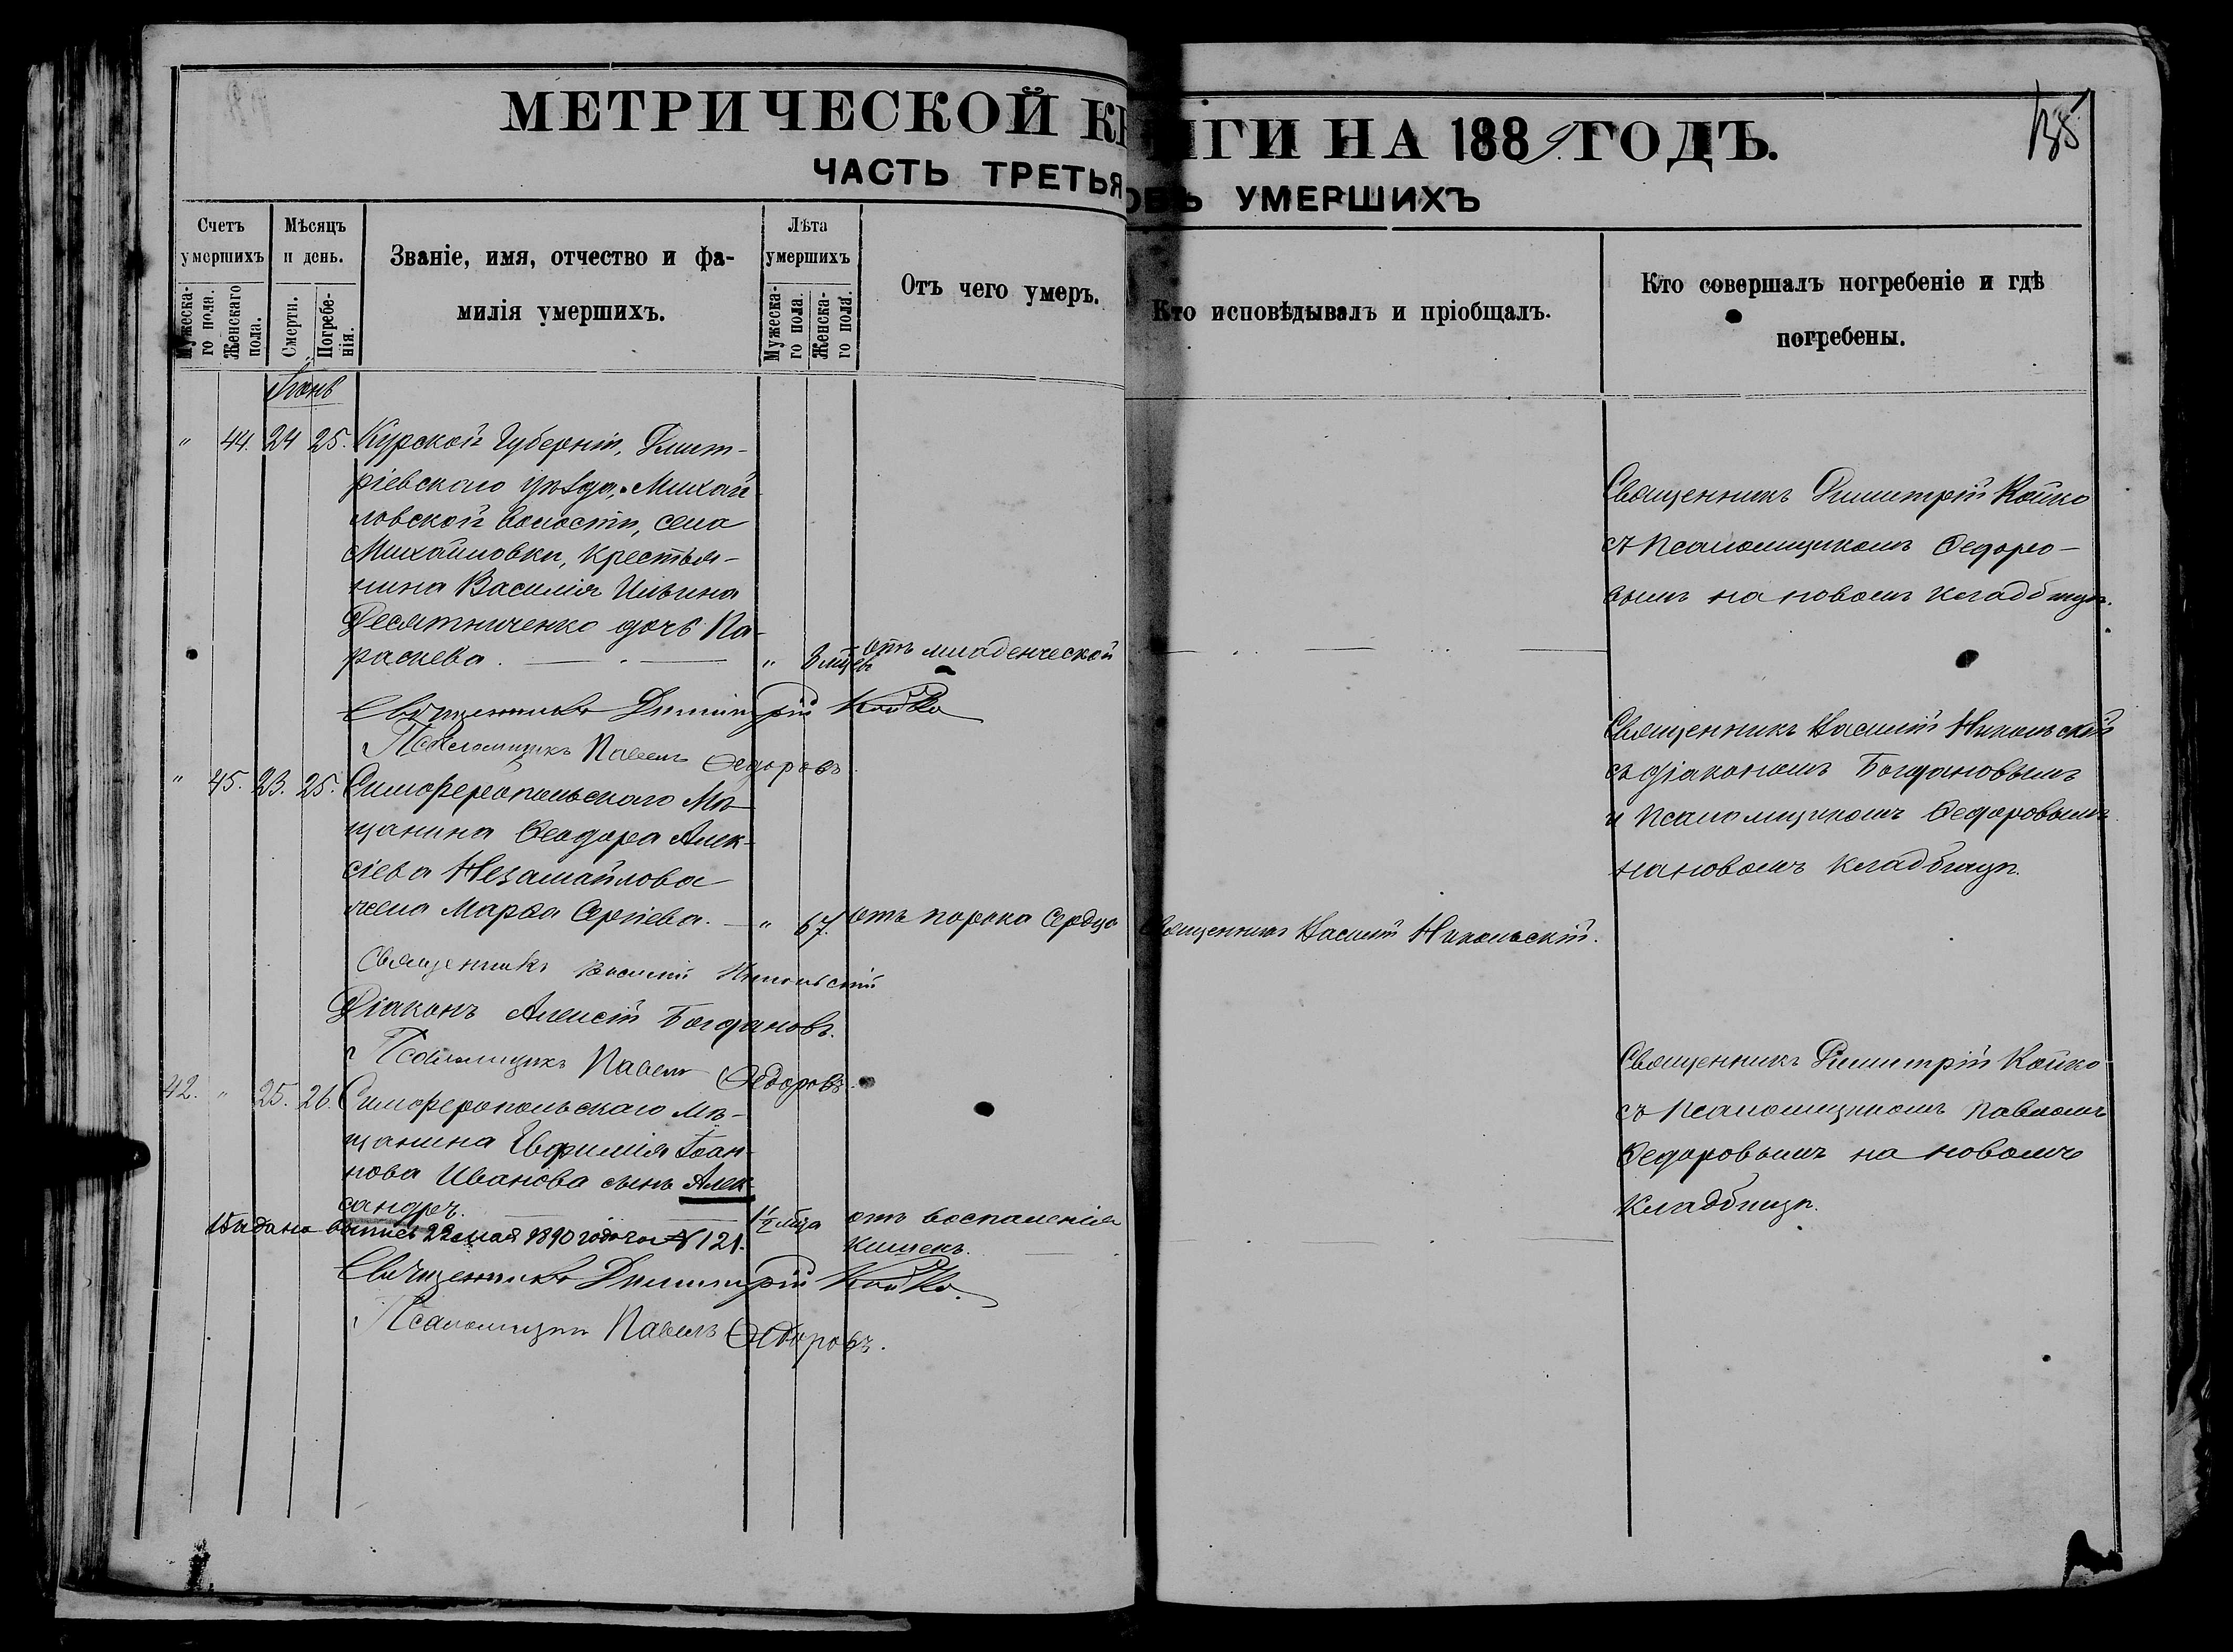 МЕТРИЧЕСКОЙ КНИГИ НА 1889 ГОДЪ.
135
ЧАСТЬ ТРЕТЬЯ УМЕРШИХЪ
Счетъ умершихъ
Мужеска-го пола.
Женскаго пола.
Мѣсяцъ и день.
Смерти.
Погребе-нія.
Званіе, имя, отчество и фа-
милія умершихъ.
Лѣта умершихъ
Мужеска-го пола.
Женска-го пола.
Отъ чего умеръ.
Кто исповѣдывалъ и пріобщалъ.
Кто совершалъ погребеніе и гдѣ
погребены.
Іюнь
" 44. 24 25. Курской Губерніи, Дмит-
ріевскаго уѣзда, Михай
ловской волости, села
Михайловки, крестья-
нина Василія Ильина
Десятниченко дочь Па-
раскева. " мѣсц отъ младенческой
Священникъ Димитрій Койко
съ Псаломщикомъ Ѳедоро-
вымъ на новомъ кладбищѣ.
Священникъ Димитрій Койко
Псаломщикъ Павелъ Ѳедоровъ
" 45. 23. 25. Симферопольскаго Мѣ
щанина Ѳеодора Алек-
сіева Незамайлова
жена Марѳа Сергіева. " 67. отъ порока Сердца
Священникъ Василій Никольскій.
Священникъ Василій Никольскій
съ діакономъ Богдановымъ
и Псаломщикомъ Ѳедоровымъ
на новомъ кладбищѣ.
Священникъ Василій Никольскій
Діаконъ Алексій Богдановъ.
Псаломщикъ Павелъ Ѳедоровъ.
42. " 25. 26. Симферопольскаго мѣ-
щанина Евфимія Іоан-
нова Иванова сынъ Алек-
сандръ. 1½ мѣца отъ воспаленія
кишекъ.
Выдана выпись 22 мая 1890 года за № 121.
Священникъ Димитрій Койко
съ псаломщикомъ Павломъ
Ѳедоровымъ на новомъ
кладбищѣ.
Священникъ Димитрій Койко.
Псаломщикъ Павелъ Ѳедоровъ.